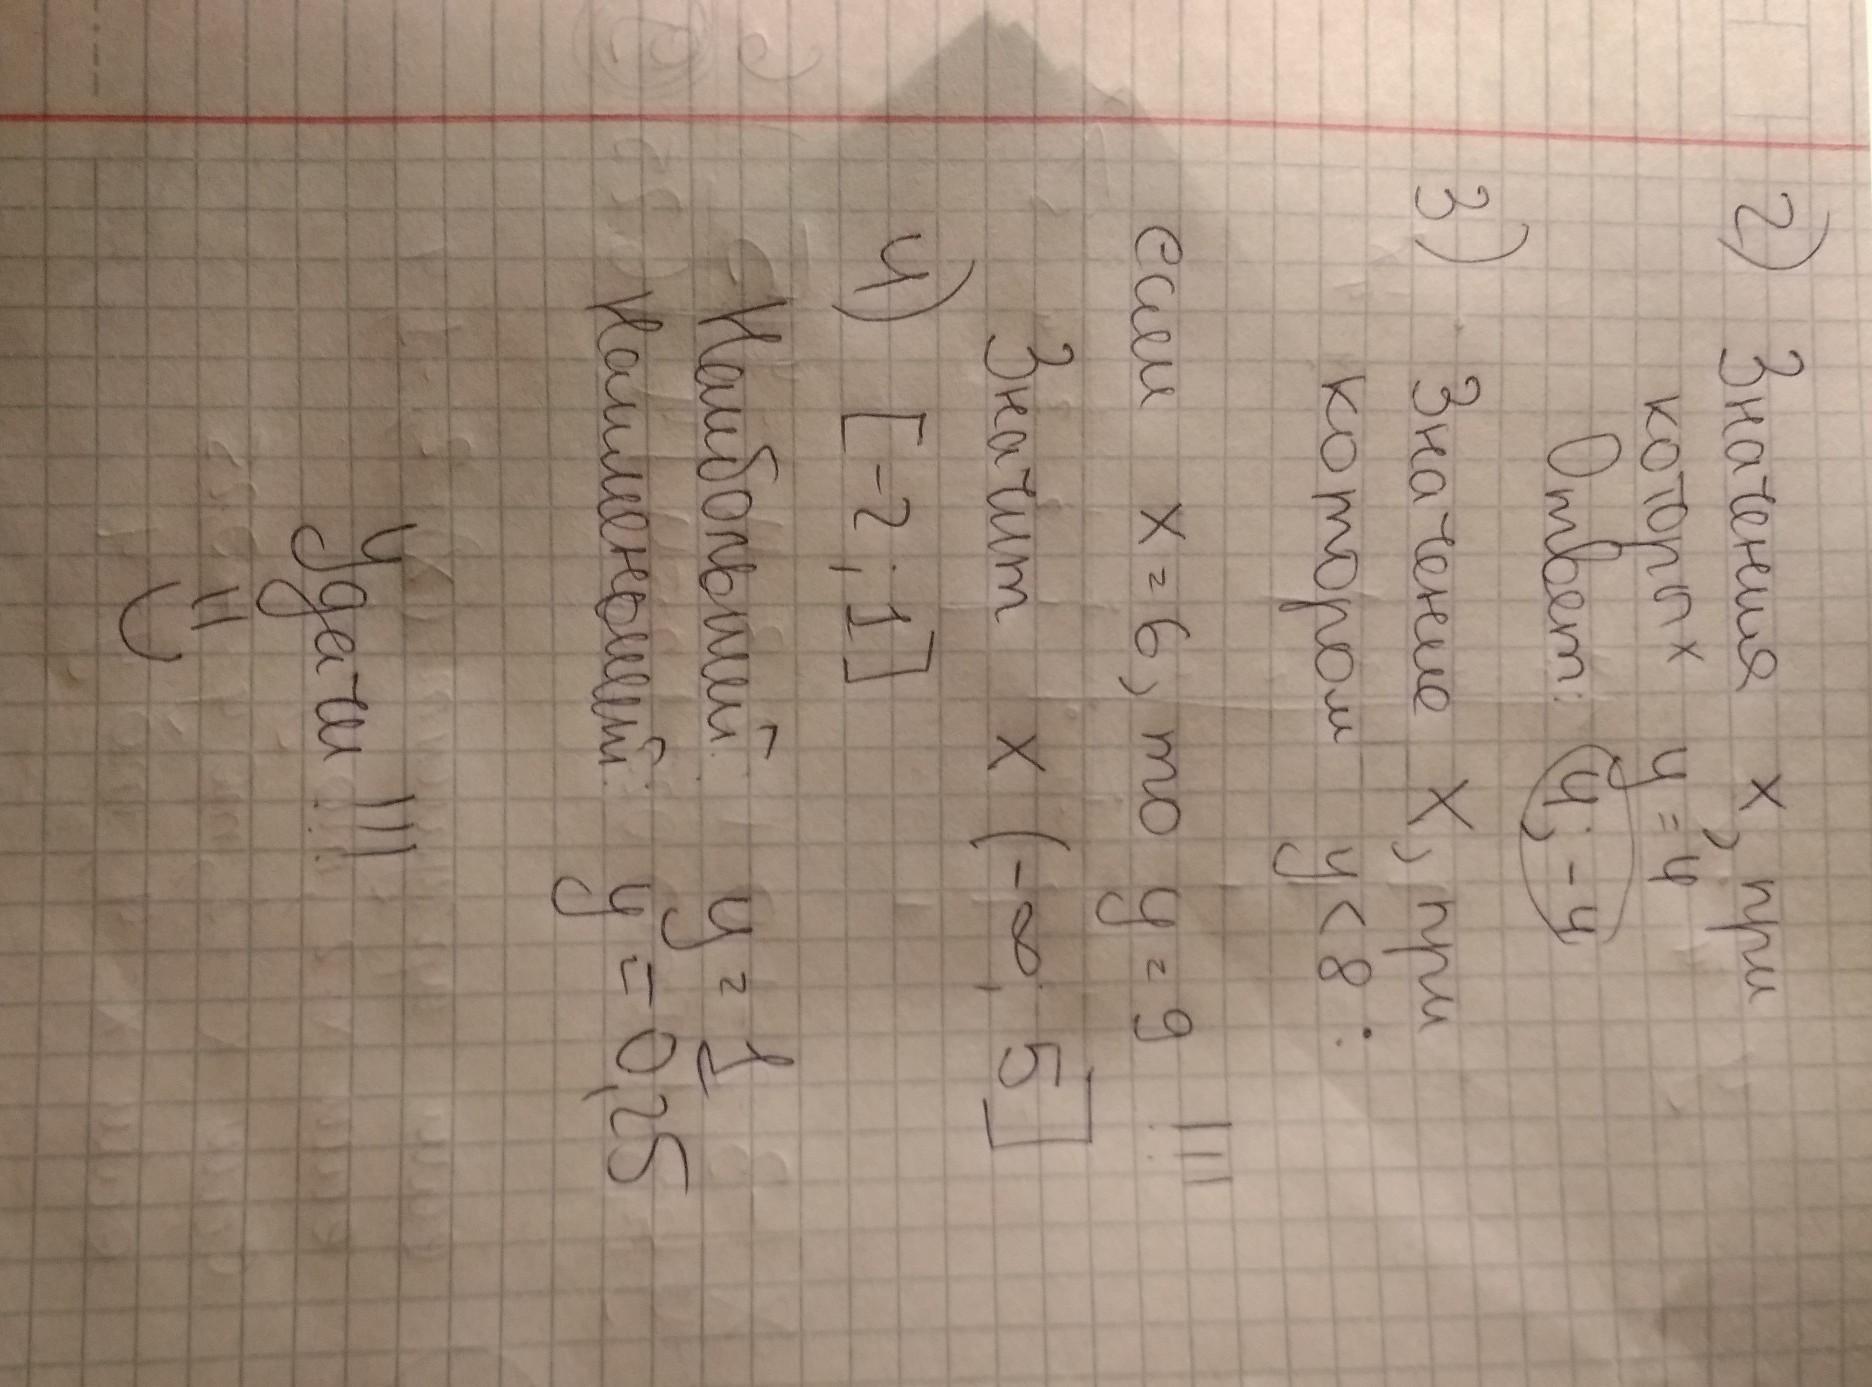 2) Значения x, при
которых y = 4
Ответ: 4; -4
3) Значение x, при
котором y < 8 :
если x = 6, то y = 9 !!!
Значит x (-∞; 5]
4) [-2; 1]
Наибольший: y = 1
Наименьший: y = 0,25
Удачи !!!
=)